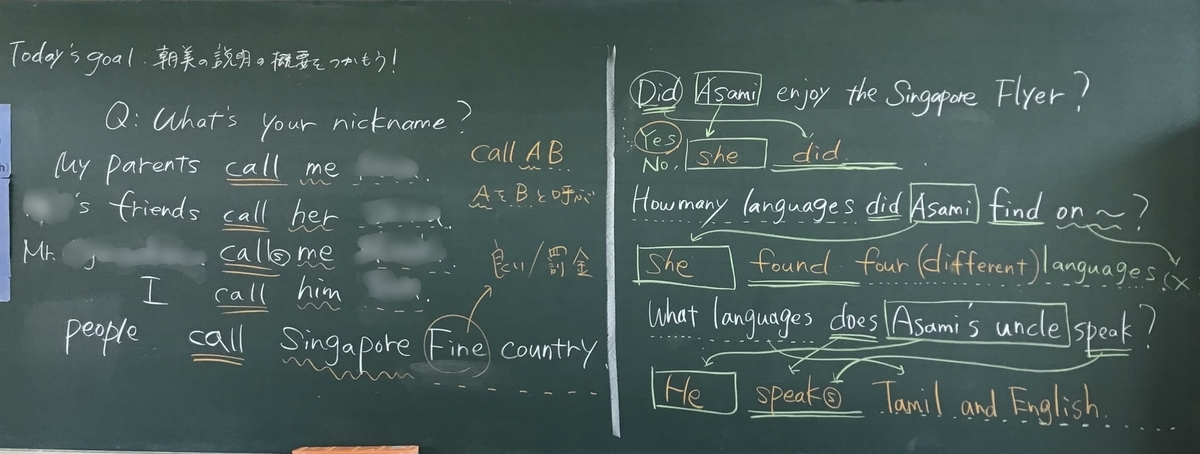 Today's goal. 朝美の説明の概要をつかもう!
Q: What's your nickname?
My parents call me
's friends call her
Mr. calls me
I call him
people call Singapore Fine country
call A B
AをBと呼ぶ
良い/罰金
Did Asami enjoy the Singapore Flyer?
Yes
No, she did
How many languages did Asami find on ~?
She found four (different) languages.(x
What languages does Asami's uncle speak?
He speaks Tamil and English.